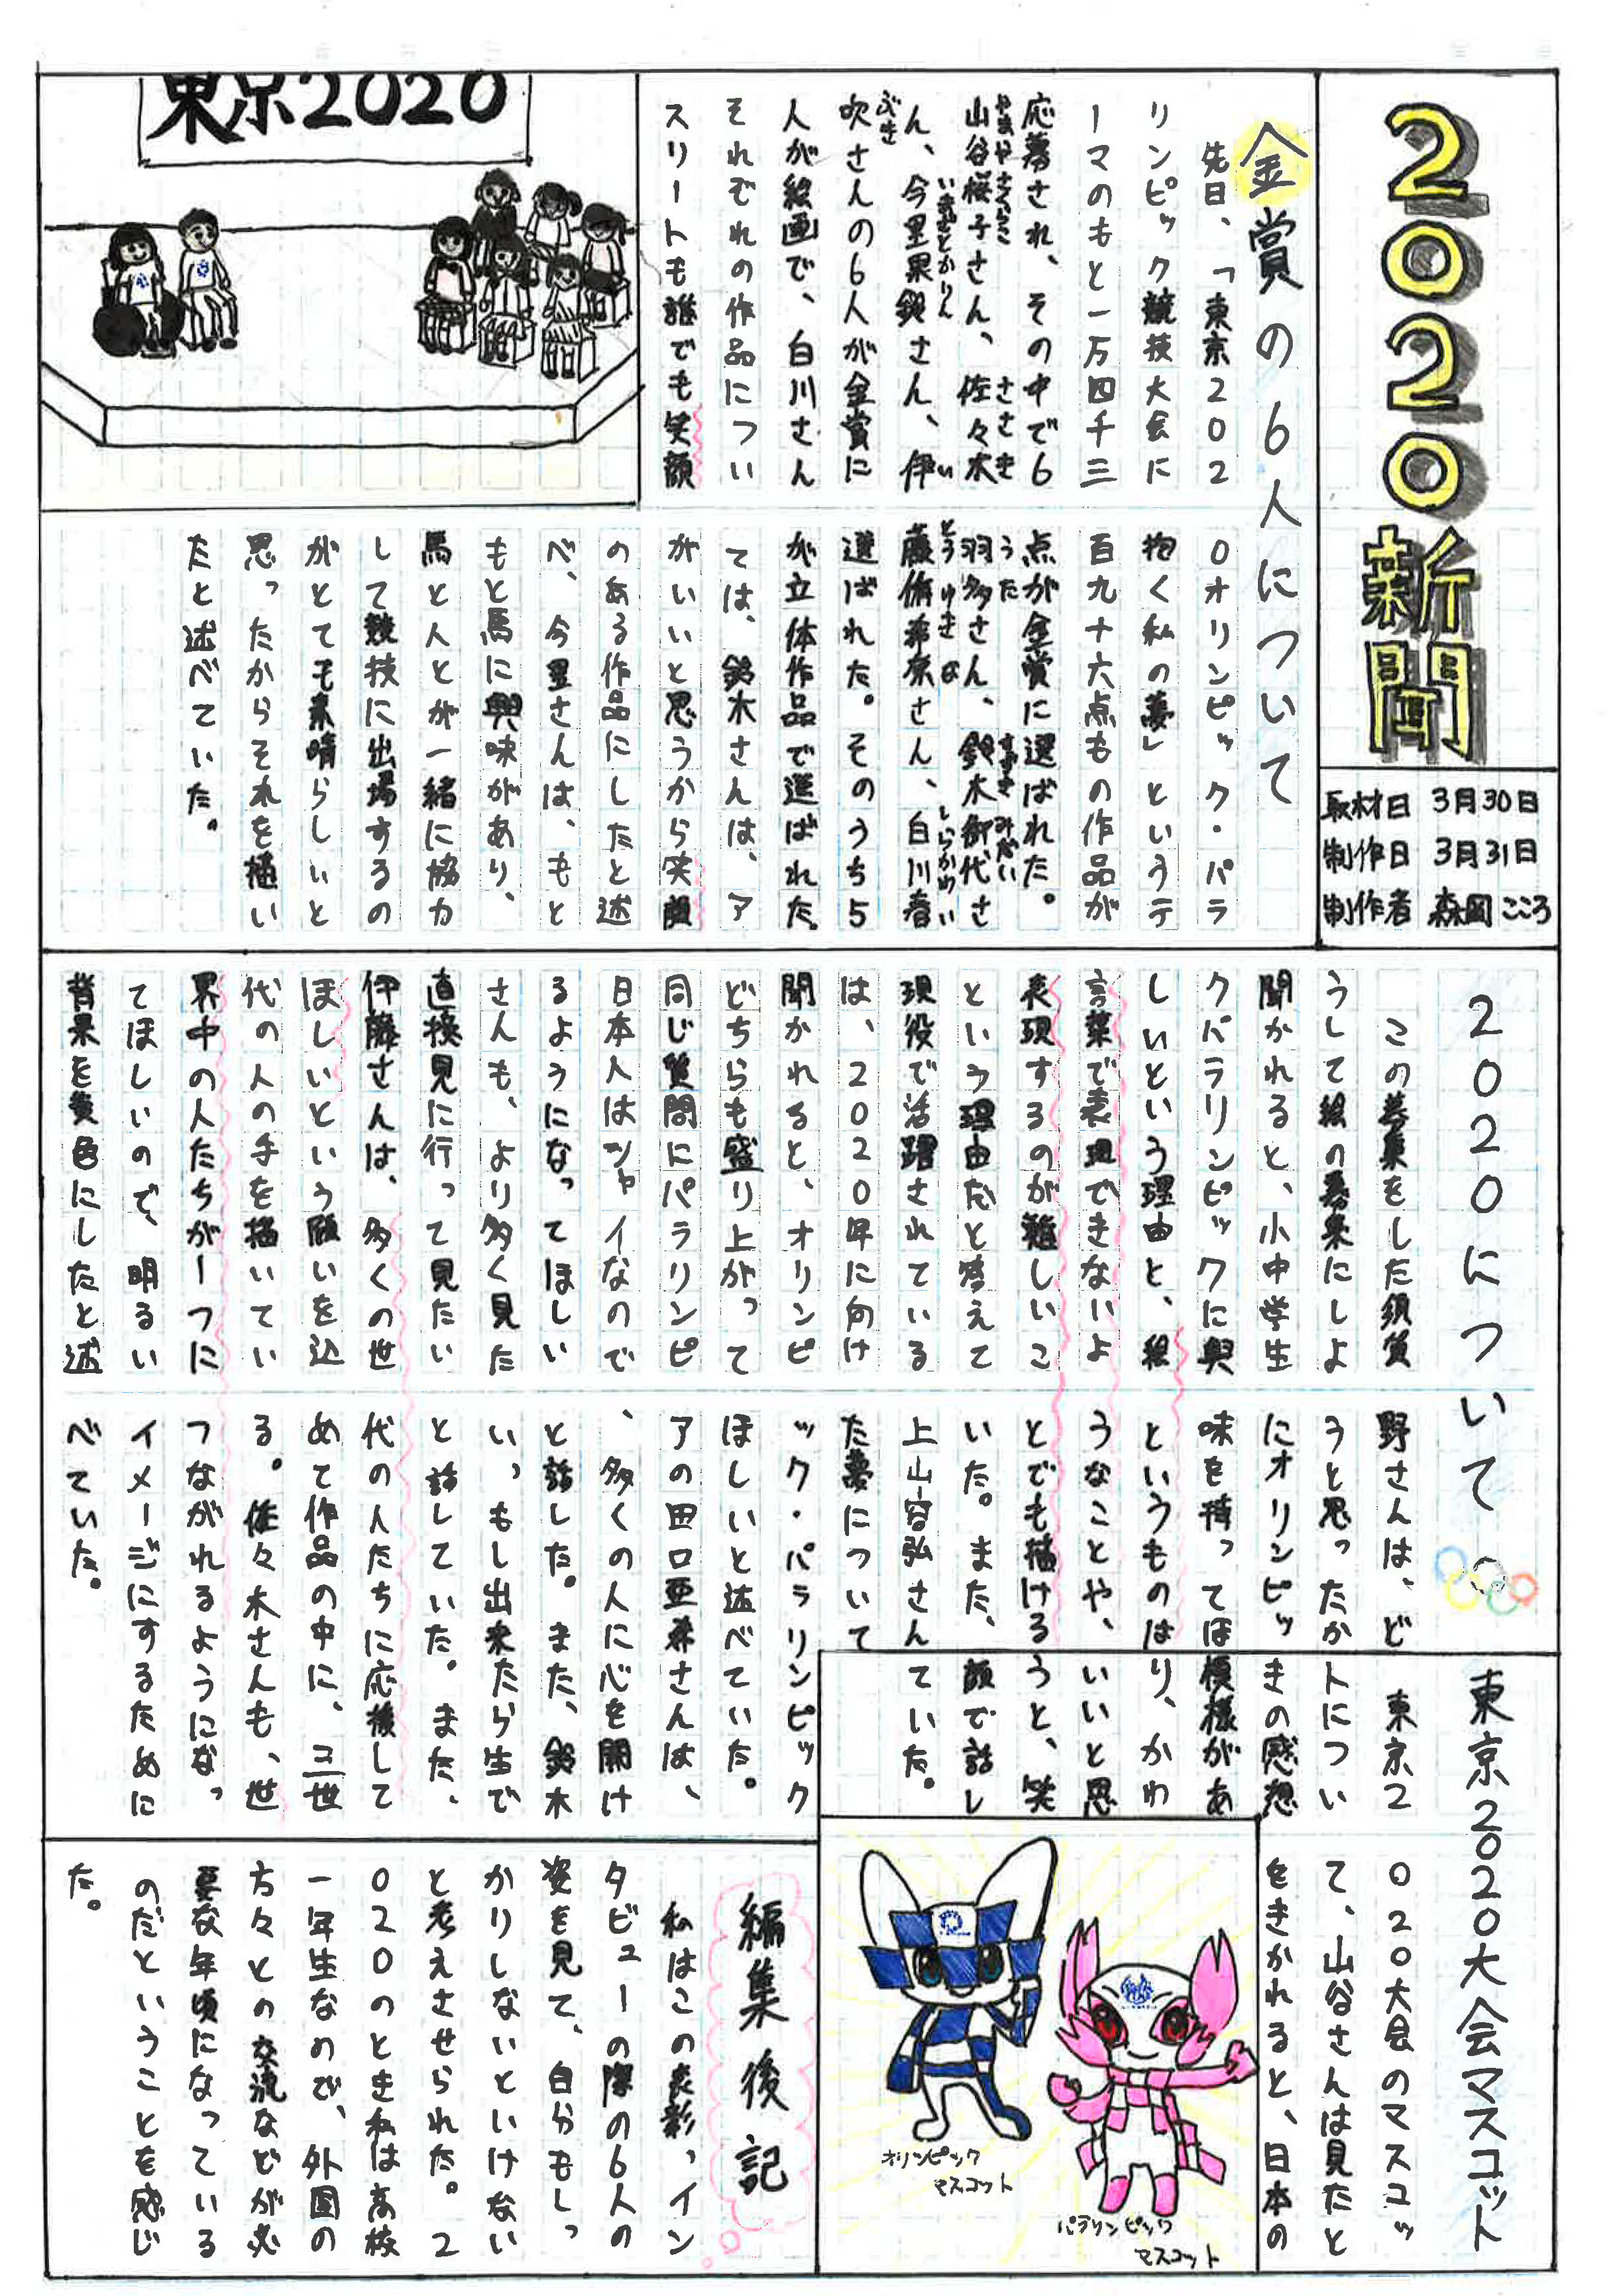 2020新聞
取材日 3月30日
制作日 3月31日
制作者 森岡こころ
金賞の6人について
先日、「東京2020オリンピック・パラ
リンピック競技大会に抱く私の夢」というテ
ーマのもと一万四千三百九十六点もの作品が
応募され、その中で6点が金賞に選ばれた。
山谷桜子さん、佐々木羽多さん、鈴木御代さ
やまやさくらこ ささきうた すずきみだい
ん、今里果鈴さん、伊藤侑希奈さん、白川春
いまざとかりん いとうゆきな しらかわい
吹さんの6人が金賞に選ばれた。そのうち5
ぶき
人が絵画で、白川さんが立体作品で選ばれた。
それぞれの作品については、鈴木さんは、ア
スリートも誰でも笑顔がいいと思うから笑顔
のある作品にしたと述
べ、今里さんは、もと
もと馬に興味があり、
馬と人とが一緒に協力
して競技に出場するの
がとても素晴らしいと
思ったからそれを描い
たと述べていた。
東京2020
2020について
この募集をした須賀野さんは、ど
うして絵の募集にしようと思ったか
聞かれると、小中学生にオリンピッ
クパラリンピックに興味を持ってほ
しいという理由と、絵というものは
言葉で表現できないようなことや、
表現するのが難しいことでも描ける
という理由だと答えていた。また、
現役で活躍されている上山容弘さん
は、2020年に向けた夢について
聞かれると、オリンピック・パラリンピック
どちらも盛り上がってほしいと述べていた。
同じ質問にパラリンピアの田口亜希さんは、
日本人はシャイなので、多くの人に心を開け
るようになってほしいと話した。また、鈴木
さんも、より多く見たい、もし出来たら生で
直接見に行って見たいと話していた。また、
伊藤さんは、多くの世代の人たちに応援して
ほしいという願いを込めて作品の中に、三世
代の人の手を描いている。佐々木さんも、世
界中の人たちが一つにつながれるようになっ
てほしいので、明るいイメージにするために
背景を黄色にしたと述べていた。
東京2020大会マスコット
東京2020大会のマスコッ
トについて、山谷さんは見たと
きの感想をきかれると、日本の
模様があ
り、かわ
いいと思
うと、笑
顔で話し
ていた。
オリンピック
マスコット
パラリンピック
マスコット
編集後記
私はこの表彰、イン
タビューの際の6人の
姿を見て、自分もしっ
かりしないといけない
と考えさせられた。2
020のとき私は高校
一年生なので、外国の
方々との交流などが必
要な年頃になっている
のだということを感じ
た。